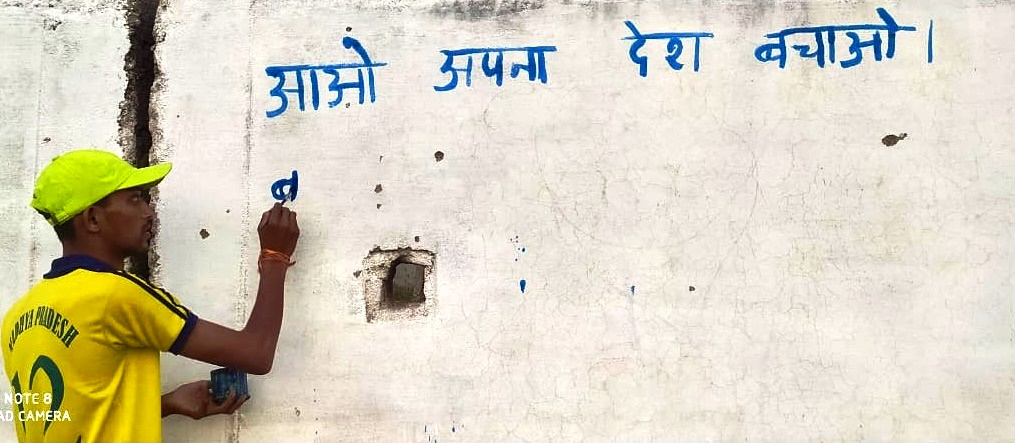 आओ अपना देश बचाओ।
ब
MADHYA PRADESH
12
NOTE 8
AD CAMERA